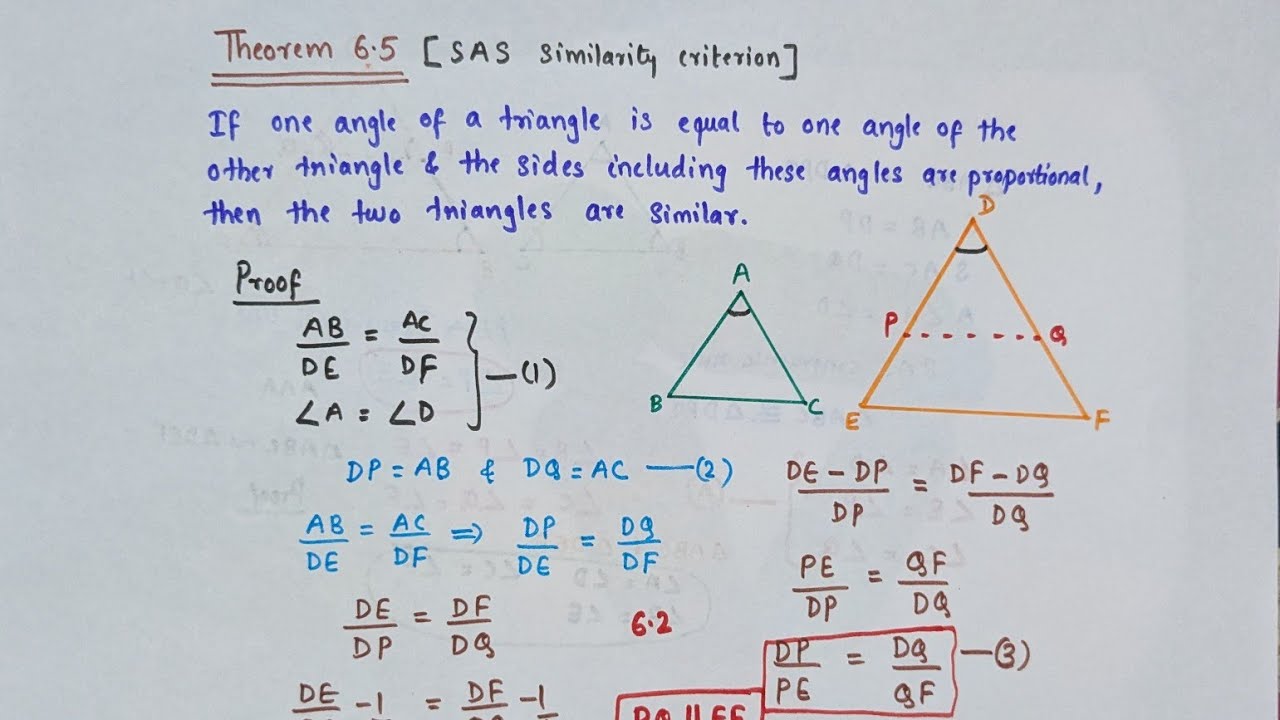 Theorem 6.5 [SAS Similarity criterion]
If one angle of a triangle is equal to one angle of the
other triangle & the sides including these angles are proportional,
then the two triangles are similar.
Proof
AB/DE = AC/DF
∠A = ∠D } —(1)
A
B
C
D
P
Q
E
F
DP = AB & DQ = AC —(2)
AB/DE = AC/DF ⟹ DP/DE = DQ/DF
DE/DP = DF/DQ
DE/ -1 = DF/ -1
DE - DP/DP = DF - DQ/DQ
PE/DP = QF/DQ
6.2
DP/PE = DQ/QF —(3)
PQ || EF